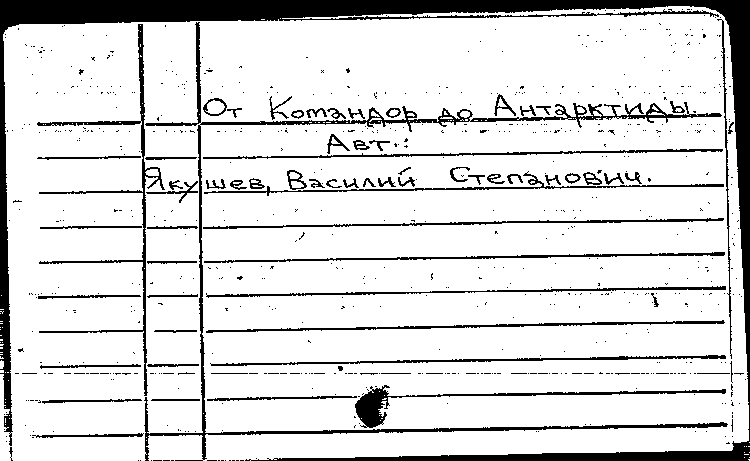 От Командор до Антарктиды
Авт.:
Якушев, Василий Степанович.